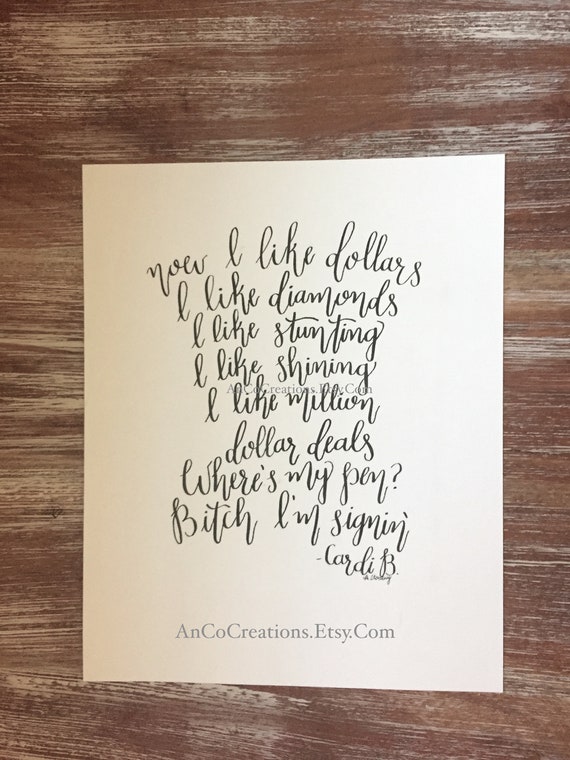 now I like dollars
I like diamonds
I like stunting
I like shining
AnCoCreations.Etsy.Com
I like million
dollar deals
Where's my pen?
Bitch I'm signin'
-Cardi B.
AnCoCreations.Etsy.Com